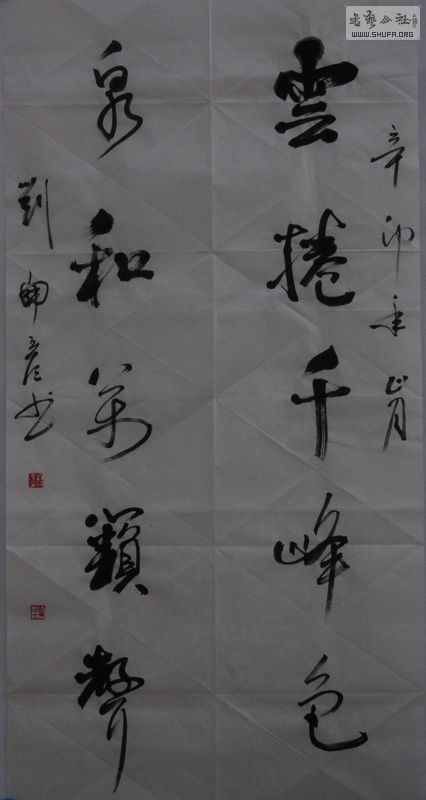 書藝公社
WWW.SHUFA.ORG
辛卯年正月
雲捲千峰色
泉和萬籟聲
劉申彥书